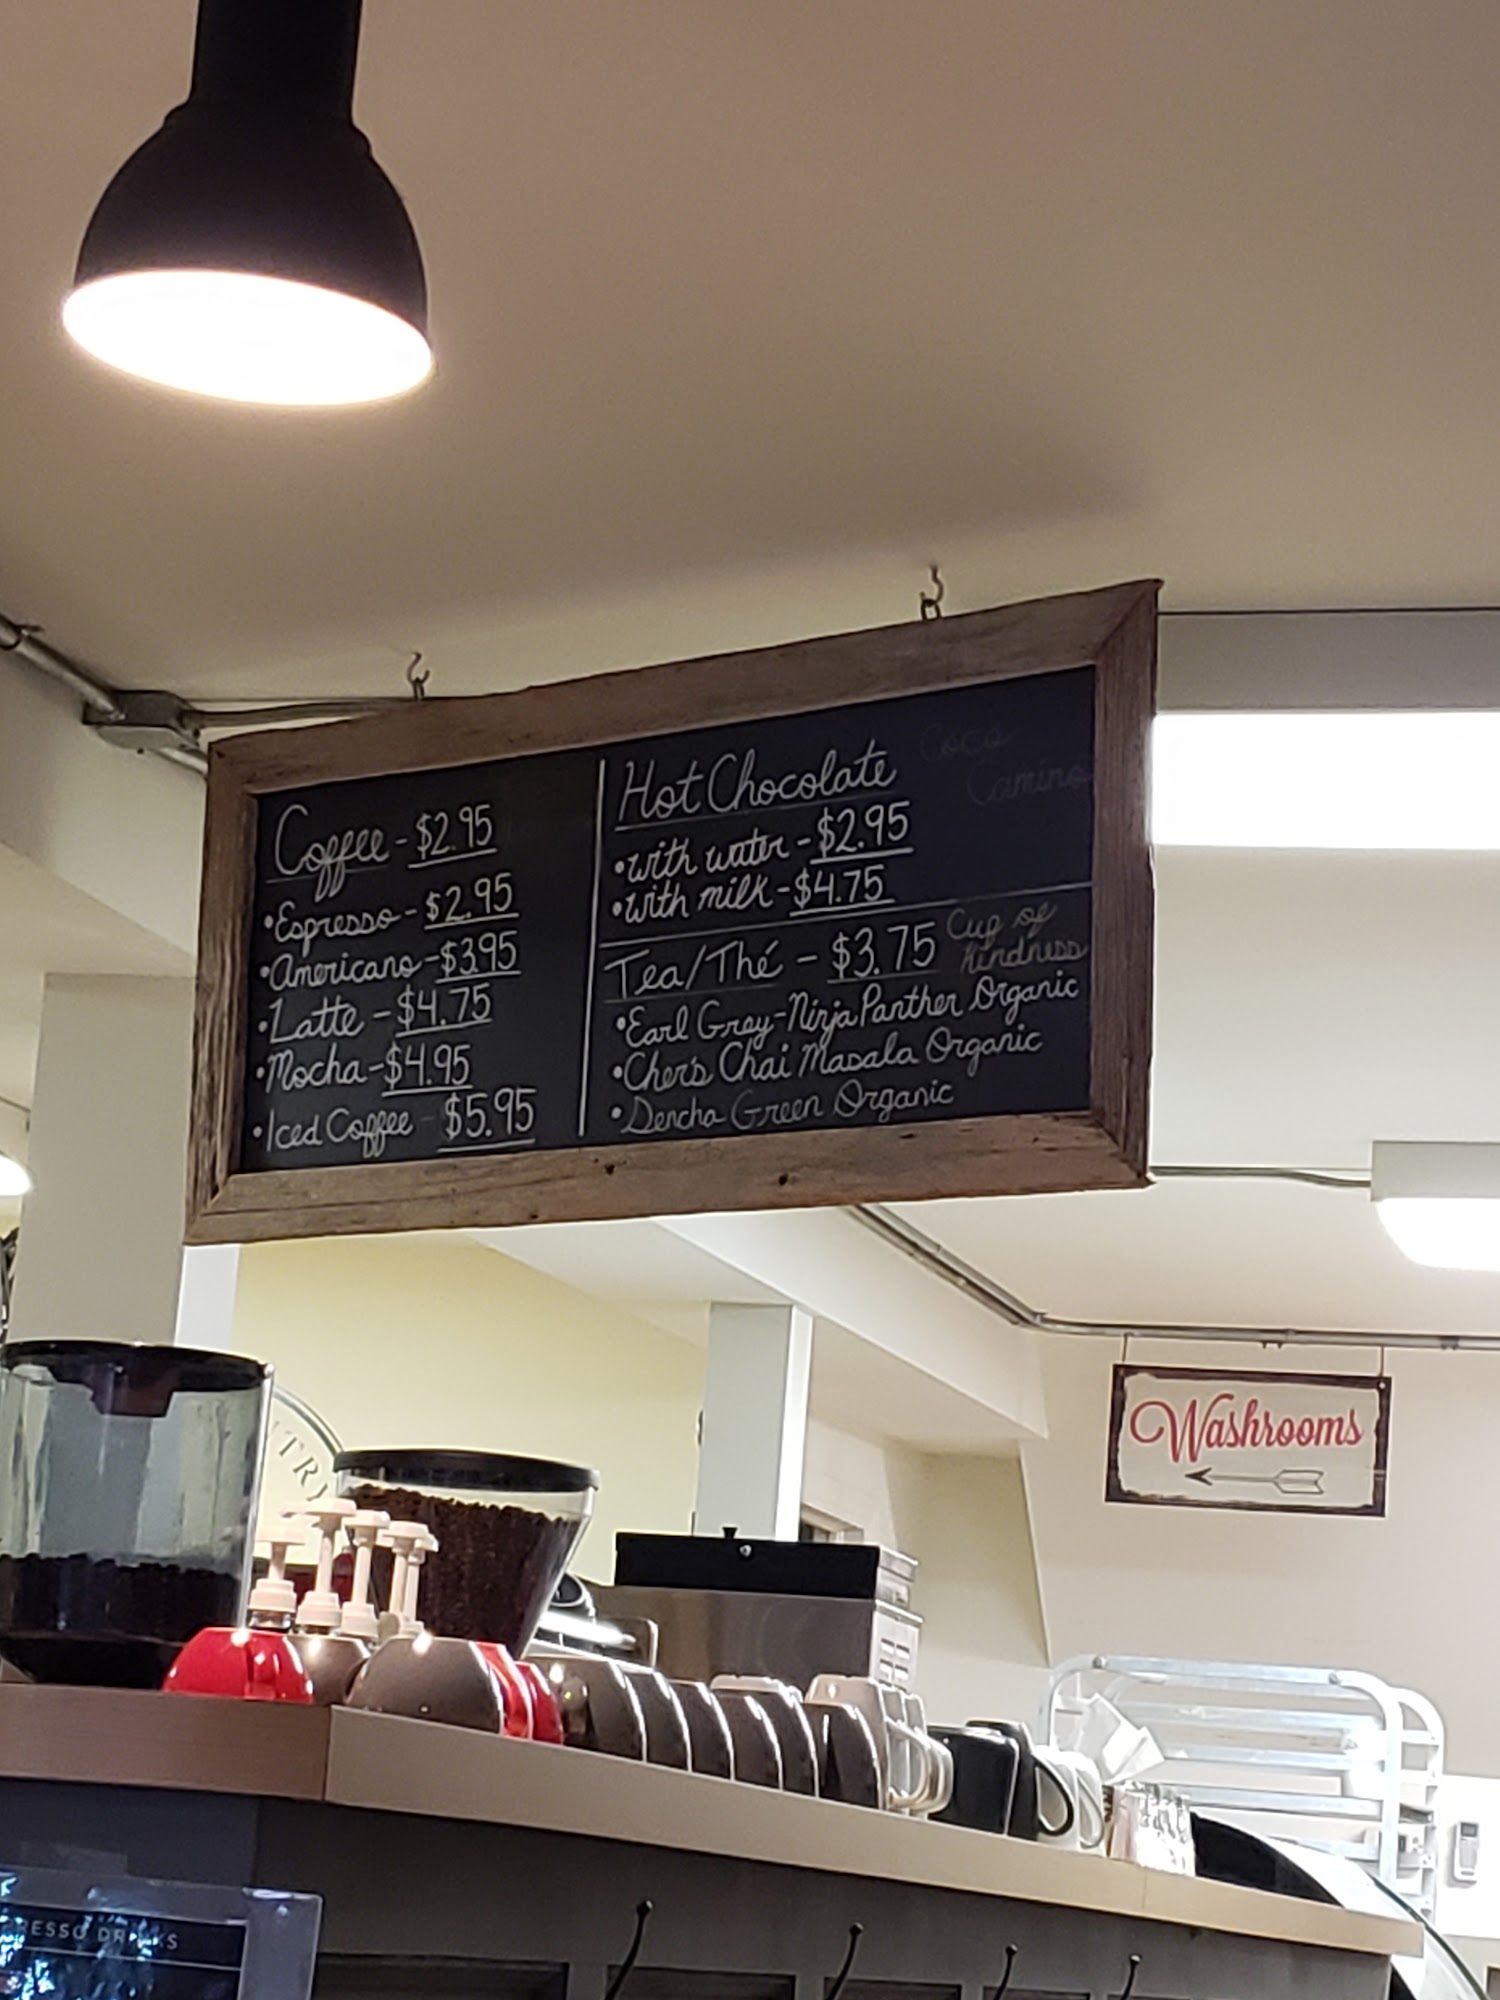 Coffee - $2.95
• Espresso - $2.95
• Americano - $3.95
• Latte - $4.75
• Mocha - $4.95
• Iced Coffee - $5.95
Hot Chocolate
Coco
Camino
• with water - $2.95
• with milk - $4.75
Tea/Thé - $3.75
Cup of
Kindness
• Earl Grey - Ninja Panther Organic
• Cher's Chai Masala Organic
• Sencha Green Organic
Washrooms